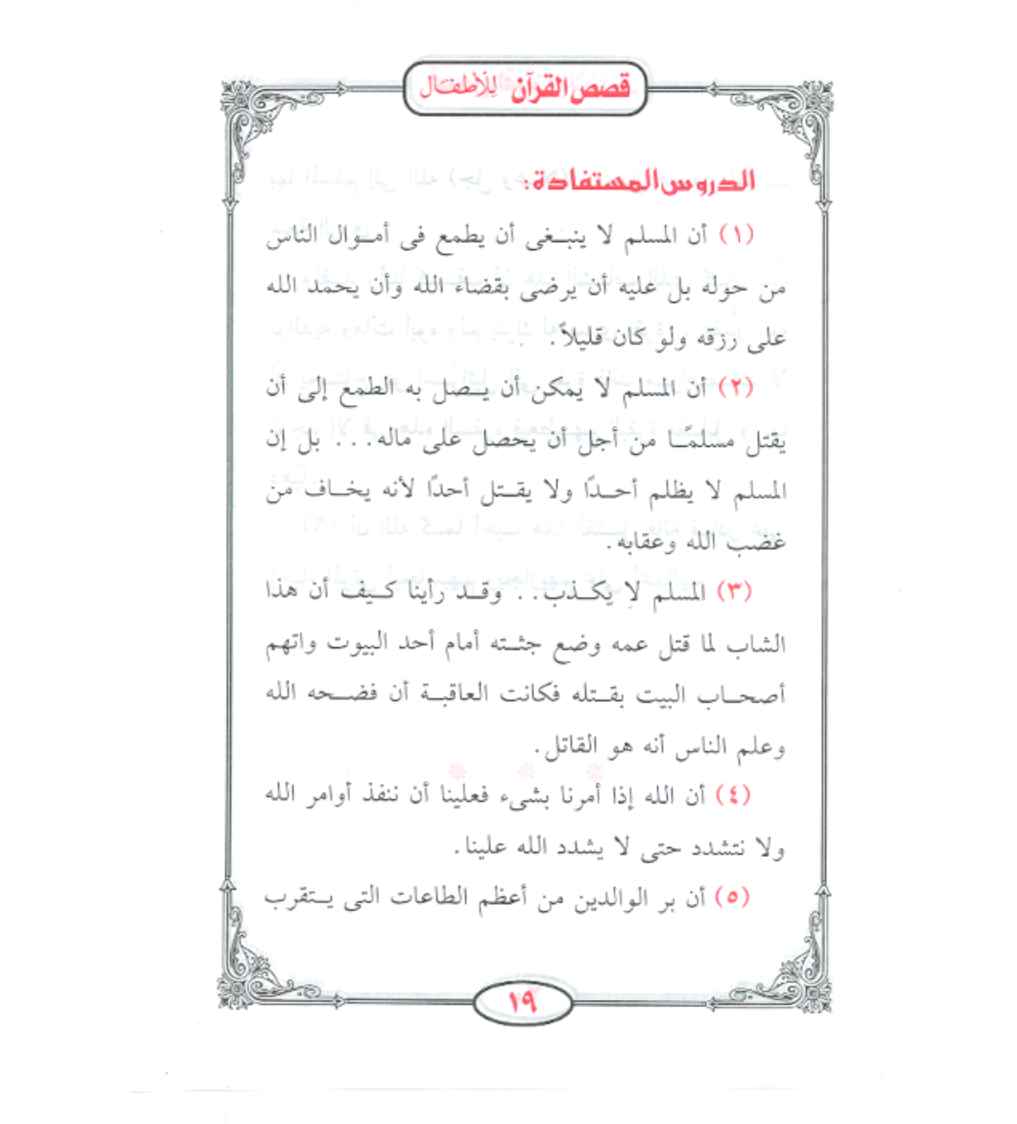 قصص القرآن للأطفال
الدروس المستفادة:
(١) أن المسلم لا ينبغى أن يطمع فى أموال الناس
من حوله بل عليه أن يرضى بقضاء الله وأن يحمد الله
على رزقه ولو كان قليلاً.
(٢) أن المسلم لا يمكن أن يصل به الطمع إلى أن
يقتل مسلمًا من أجل أن يحصل على ماله... بل إن
المسلم لا يظلم أحدًا ولا يقتل أحدًا لأنه يخاف من
غضب الله وعقابه.
(٣) المسلم لا يكذب.. وقد رأينا كيف أن هذا
الشاب لما قتل عمه وضع جثته أمام أحد البيوت واتهم
أصحاب البيت بقتله فكانت العاقبة أن فضحه الله
وعلم الناس أنه هو القاتل.
(٤) أن الله إذا أمرنا بشىء فعلينا أن ننفذ أوامر الله
ولا نتشدد حتى لا يشدد الله علينا.
(٥) أن بر الوالدين من أعظم الطاعات التى يتقرب
١٩